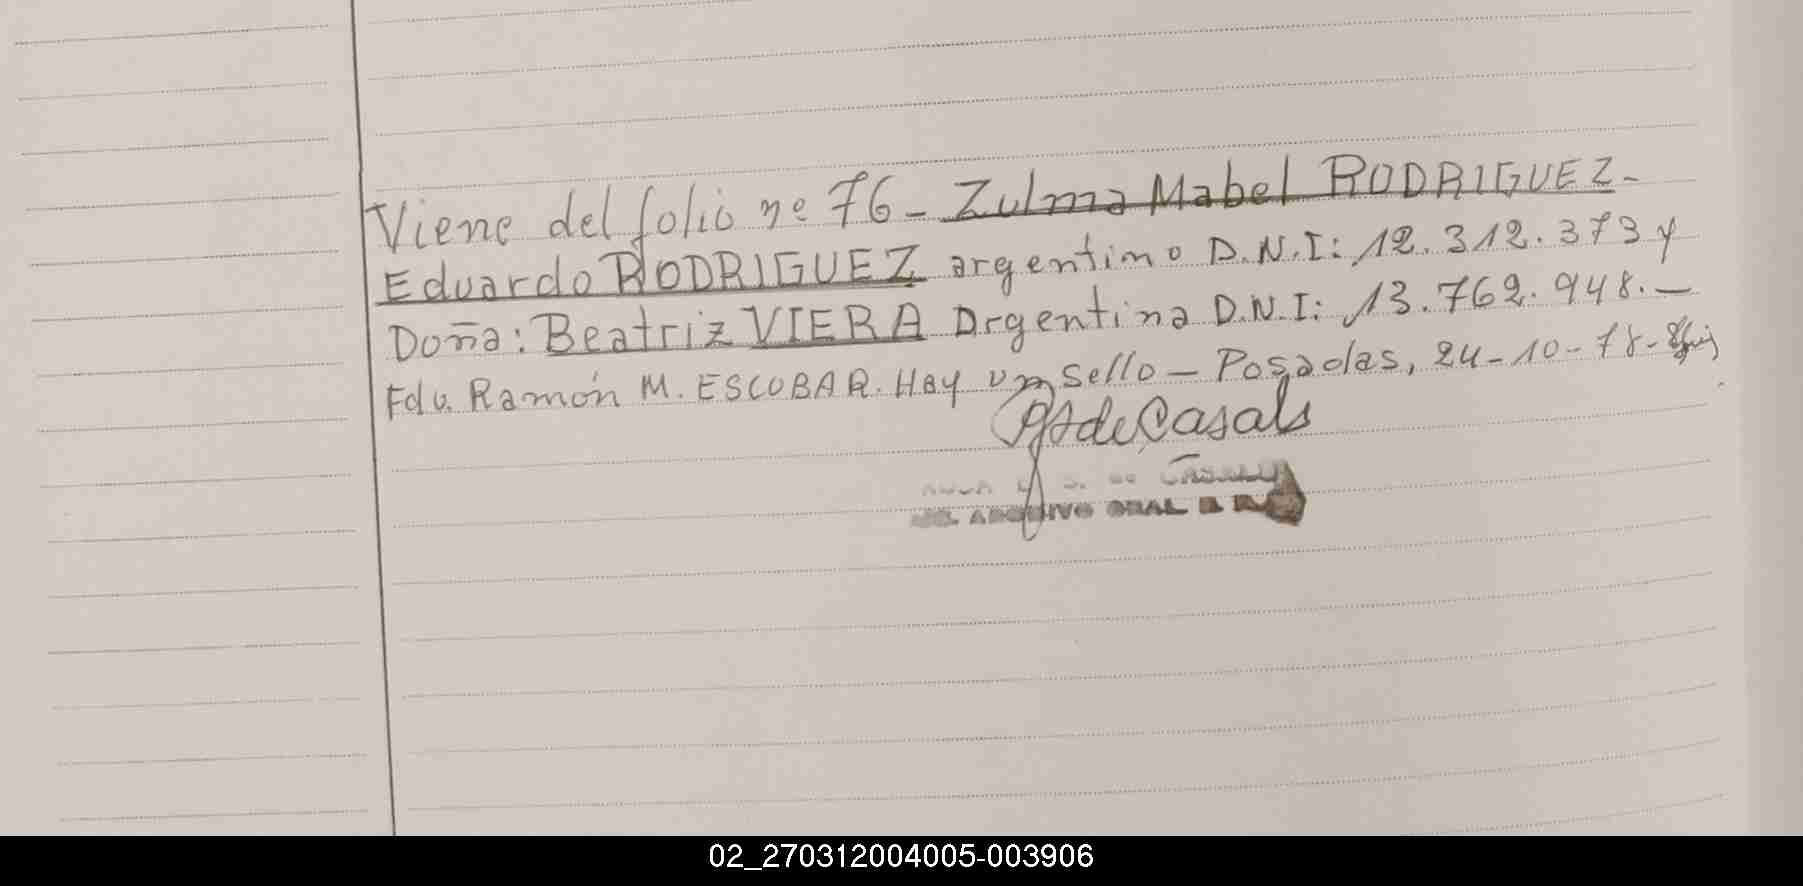 Viene del folio nº 76 - Zulma Mabel RODRIGUEZ -
Eduardo RODRIGUEZ argentino D.N.I: 12.312.373 y
Doña: Beatriz VIERA Argentina D.N.I: 13.762.948. —
Fdo. Ramón M. ESCOBAR. Hay un sello — Posadas, 24-10-78-
de Casals
DE CASALS
ARCHIVO GRAL
02_270312004005-003906